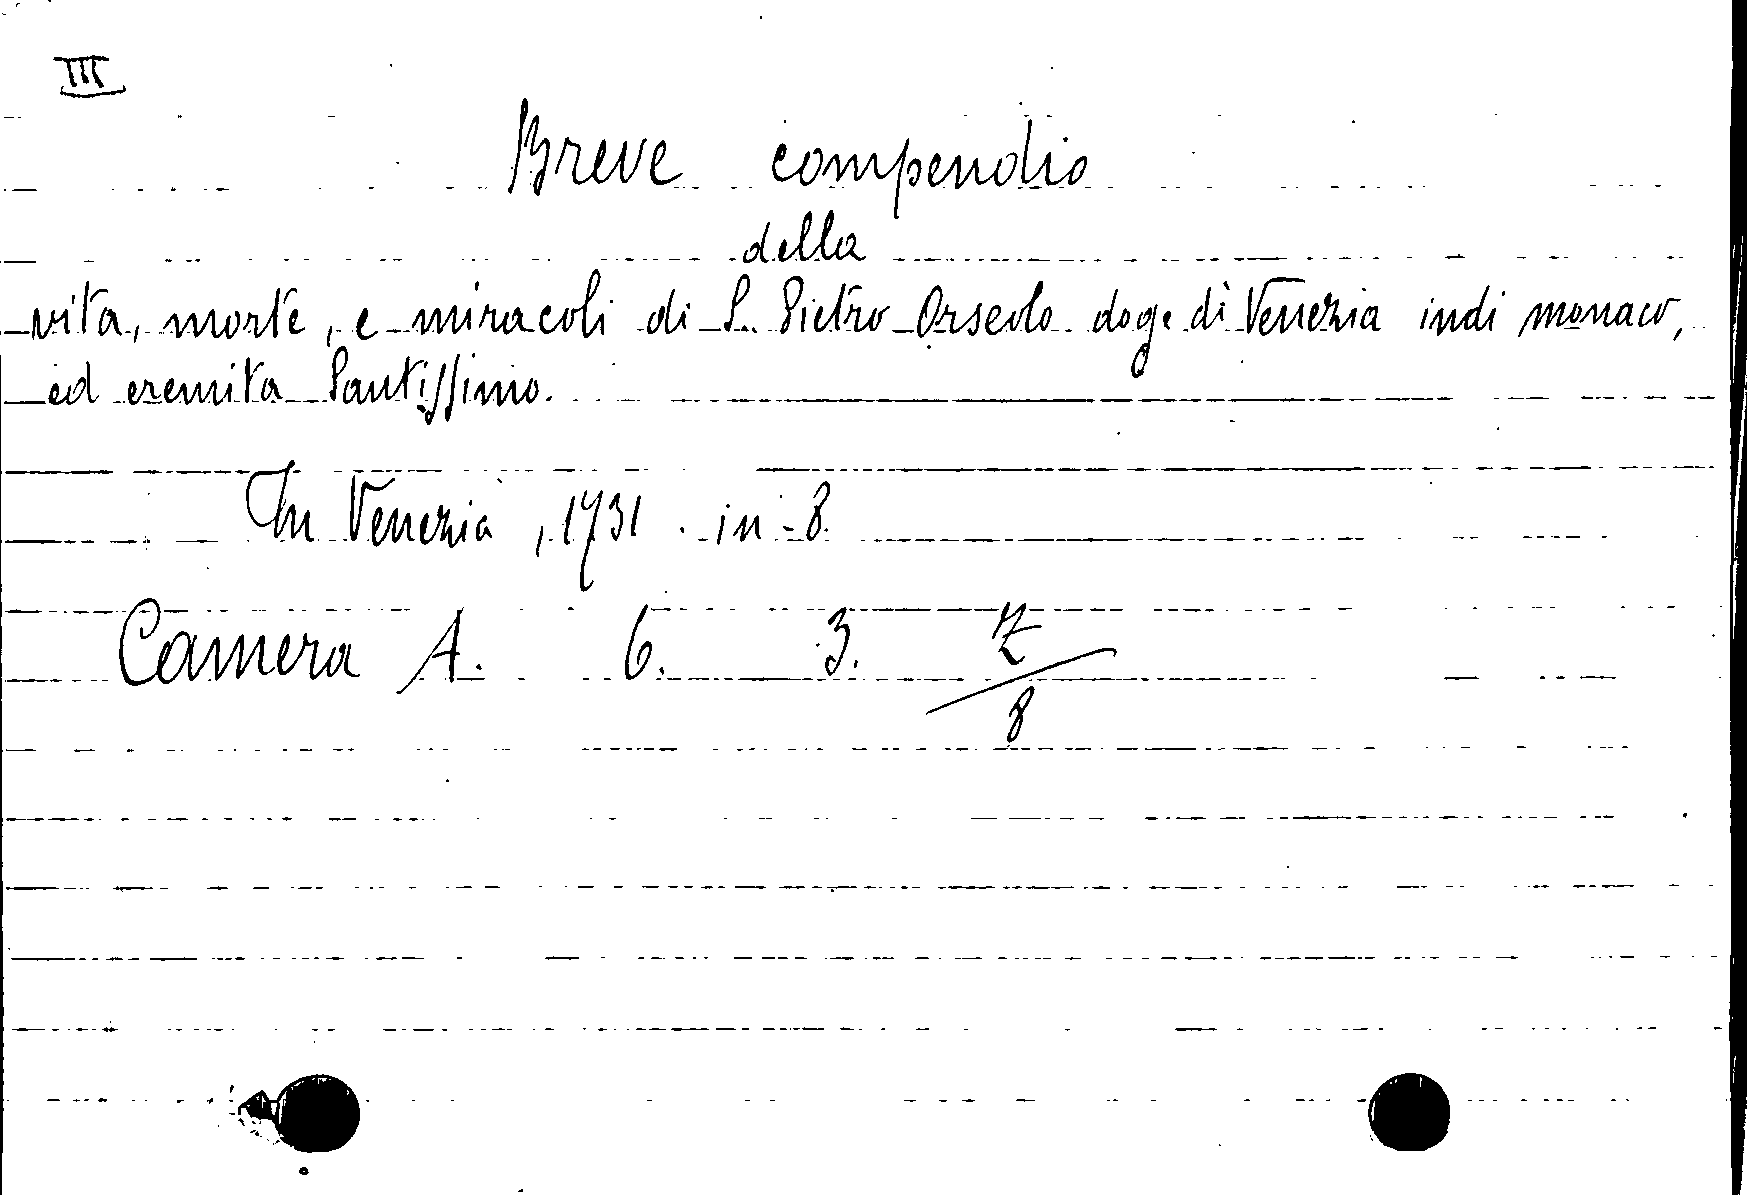 III
Breve compendio
della
vita, morte, e miracoli di S. Pietro Orseolo doge di Venezia indi monaco,
ed eremita Santissimo.
In Venezia, 1731. in-8.
Camera A. 6. 3. Z/8